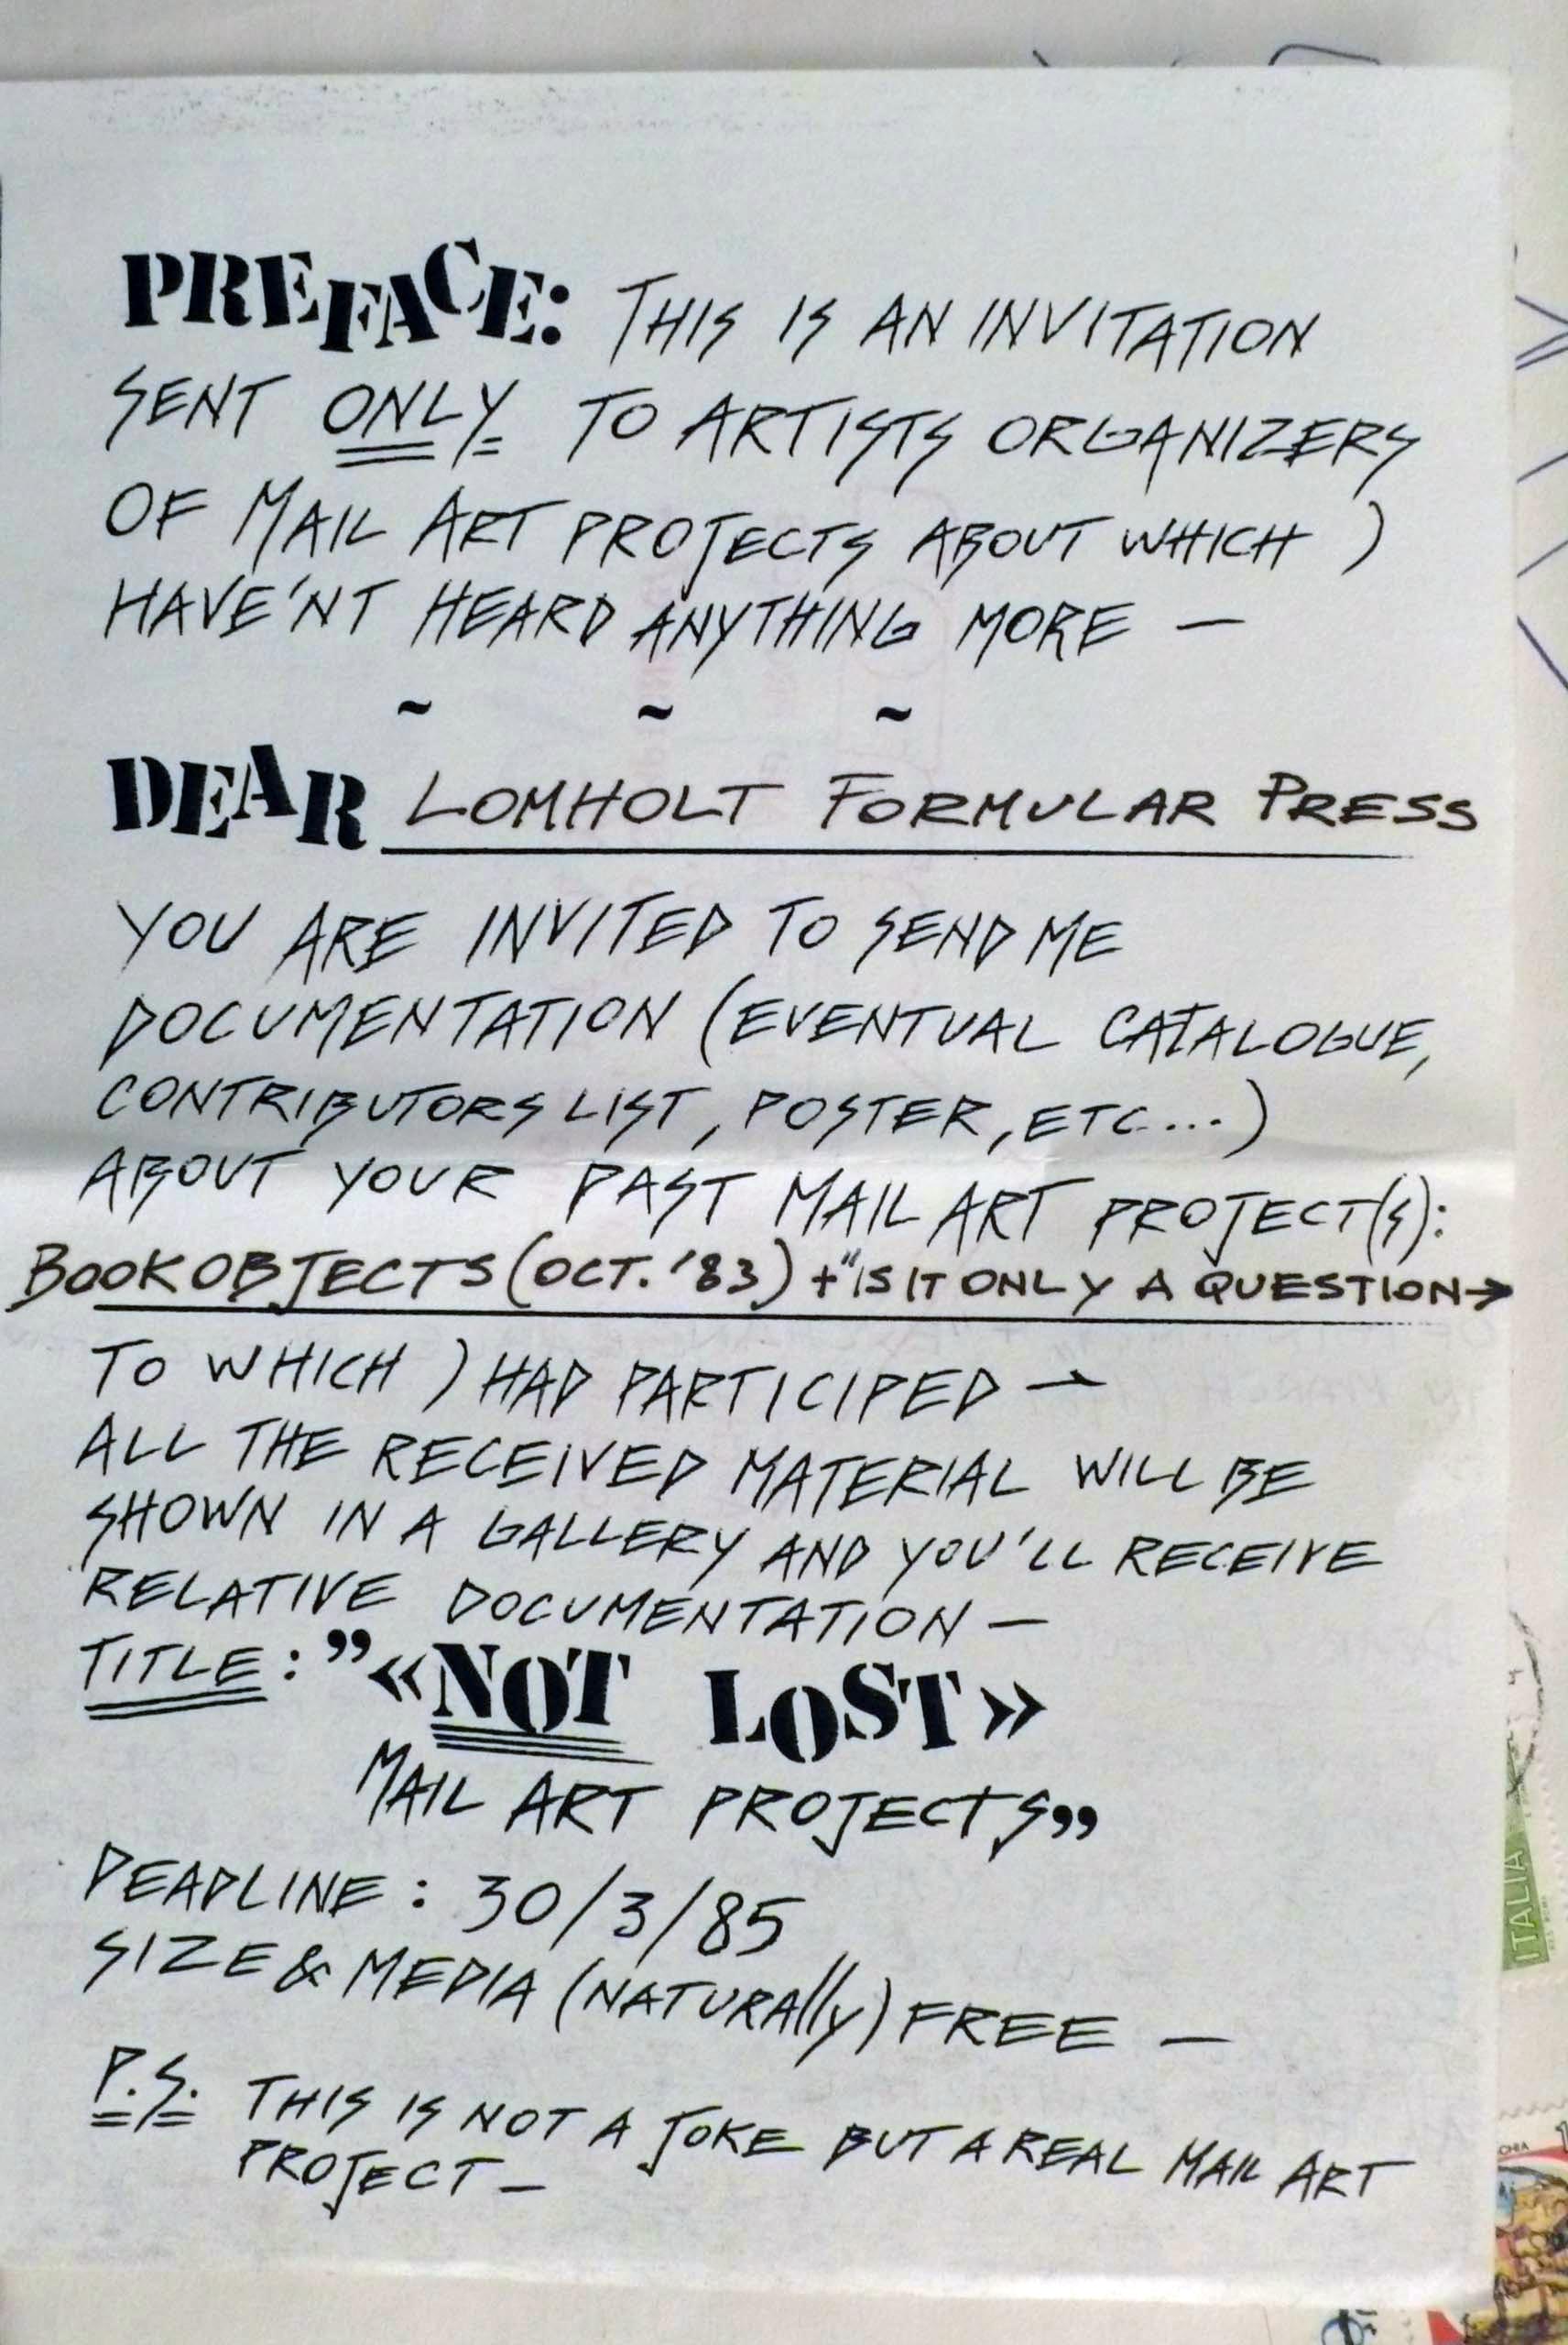 PREFACE: THIS IS AN INVITATION
SENT ONLY TO ARTISTS ORGANIZERS
OF MAIL ART PROJECTS ABOUT WHICH I
HAVE'NT HEARD ANYTHING MORE —
~ ~ ~
DEAR LOMHOLT FORMULAR PRESS
YOU ARE INVITED TO SEND ME
DOCUMENTATION (EVENTUAL CATALOGUE,
CONTRIBUTORS LIST, POSTER, ETC....)
ABOUT YOUR PAST MAIL ART PROJECT(S):
BOOKOBJECTS (OCT. '83) + "IS IT ONLY A QUESTION→
TO WHICH I HAD PARTICIPED —
ALL THE RECEIVED MATERIAL WILL BE
SHOWN IN A GALLERY AND YOU'LL RECEIVE
RELATIVE DOCUMENTATION —
TITLE: ”«NOT LOST»
MAIL ART PROJECTS”
DEADLINE: 30/3/85
SIZE & MEDIA (NATURAlly) FREE —
P.S. THIS IS NOT A JOKE BUT A REAL MAIL ART
PROJECT —
ITALIA